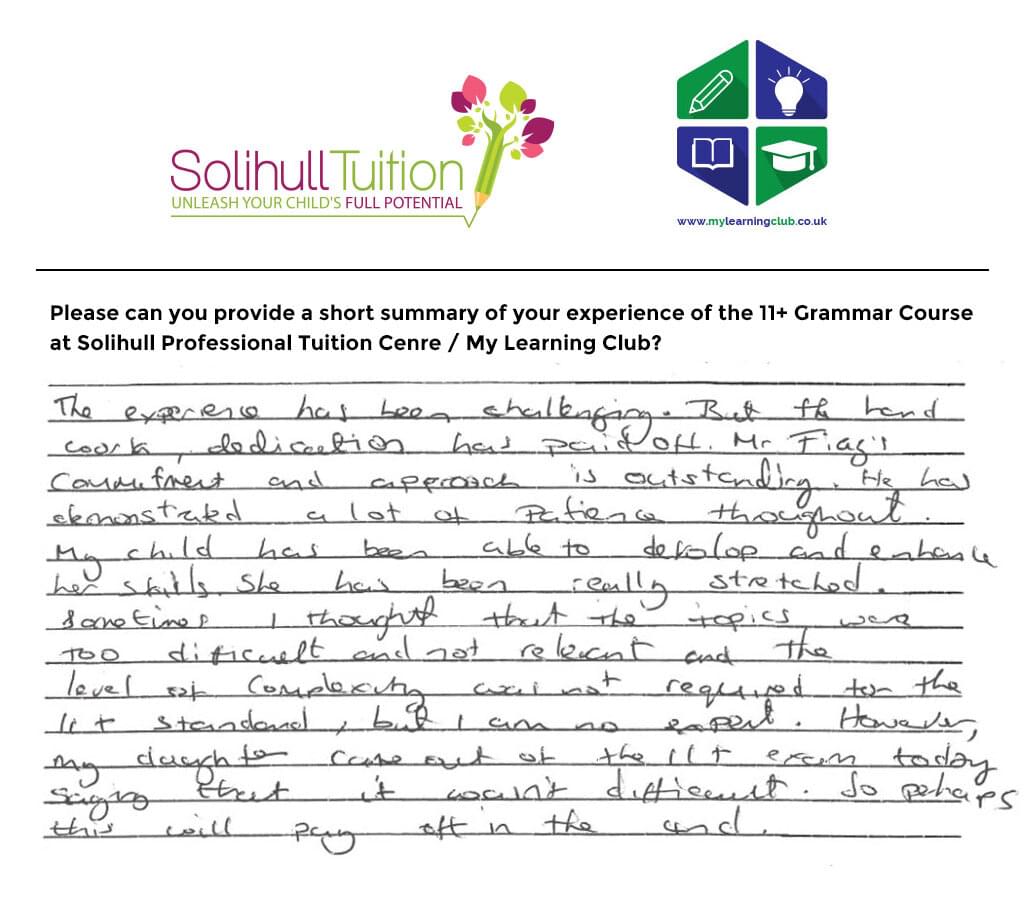 Solihull Tuition
UNLEASH YOUR CHILD'S FULL POTENTIAL
www.mylearningclub.co.uk
Please can you provide a short summary of your experience of the 11+ Grammar Course
at Solihull Professional Tuition Cenre / My Learning Club?
The experience has been challenging. But the hard
work, dedication has paid off. Mr Fiaz's
Commitment and approach is outstanding. He has
demonstrated a lot of Patience throughout.
My child has been able to develop and enhance
her skills. She has been really stretched.
Sometimes I thought that the topics were
too difficult and not relevant and the
level of Complexity was not required for the
11+ standard, but I am no expert. However,
my daughter came out of the 11+ exam today
saying that it wasn't difficult. So perhaps
this will pay off in the end.